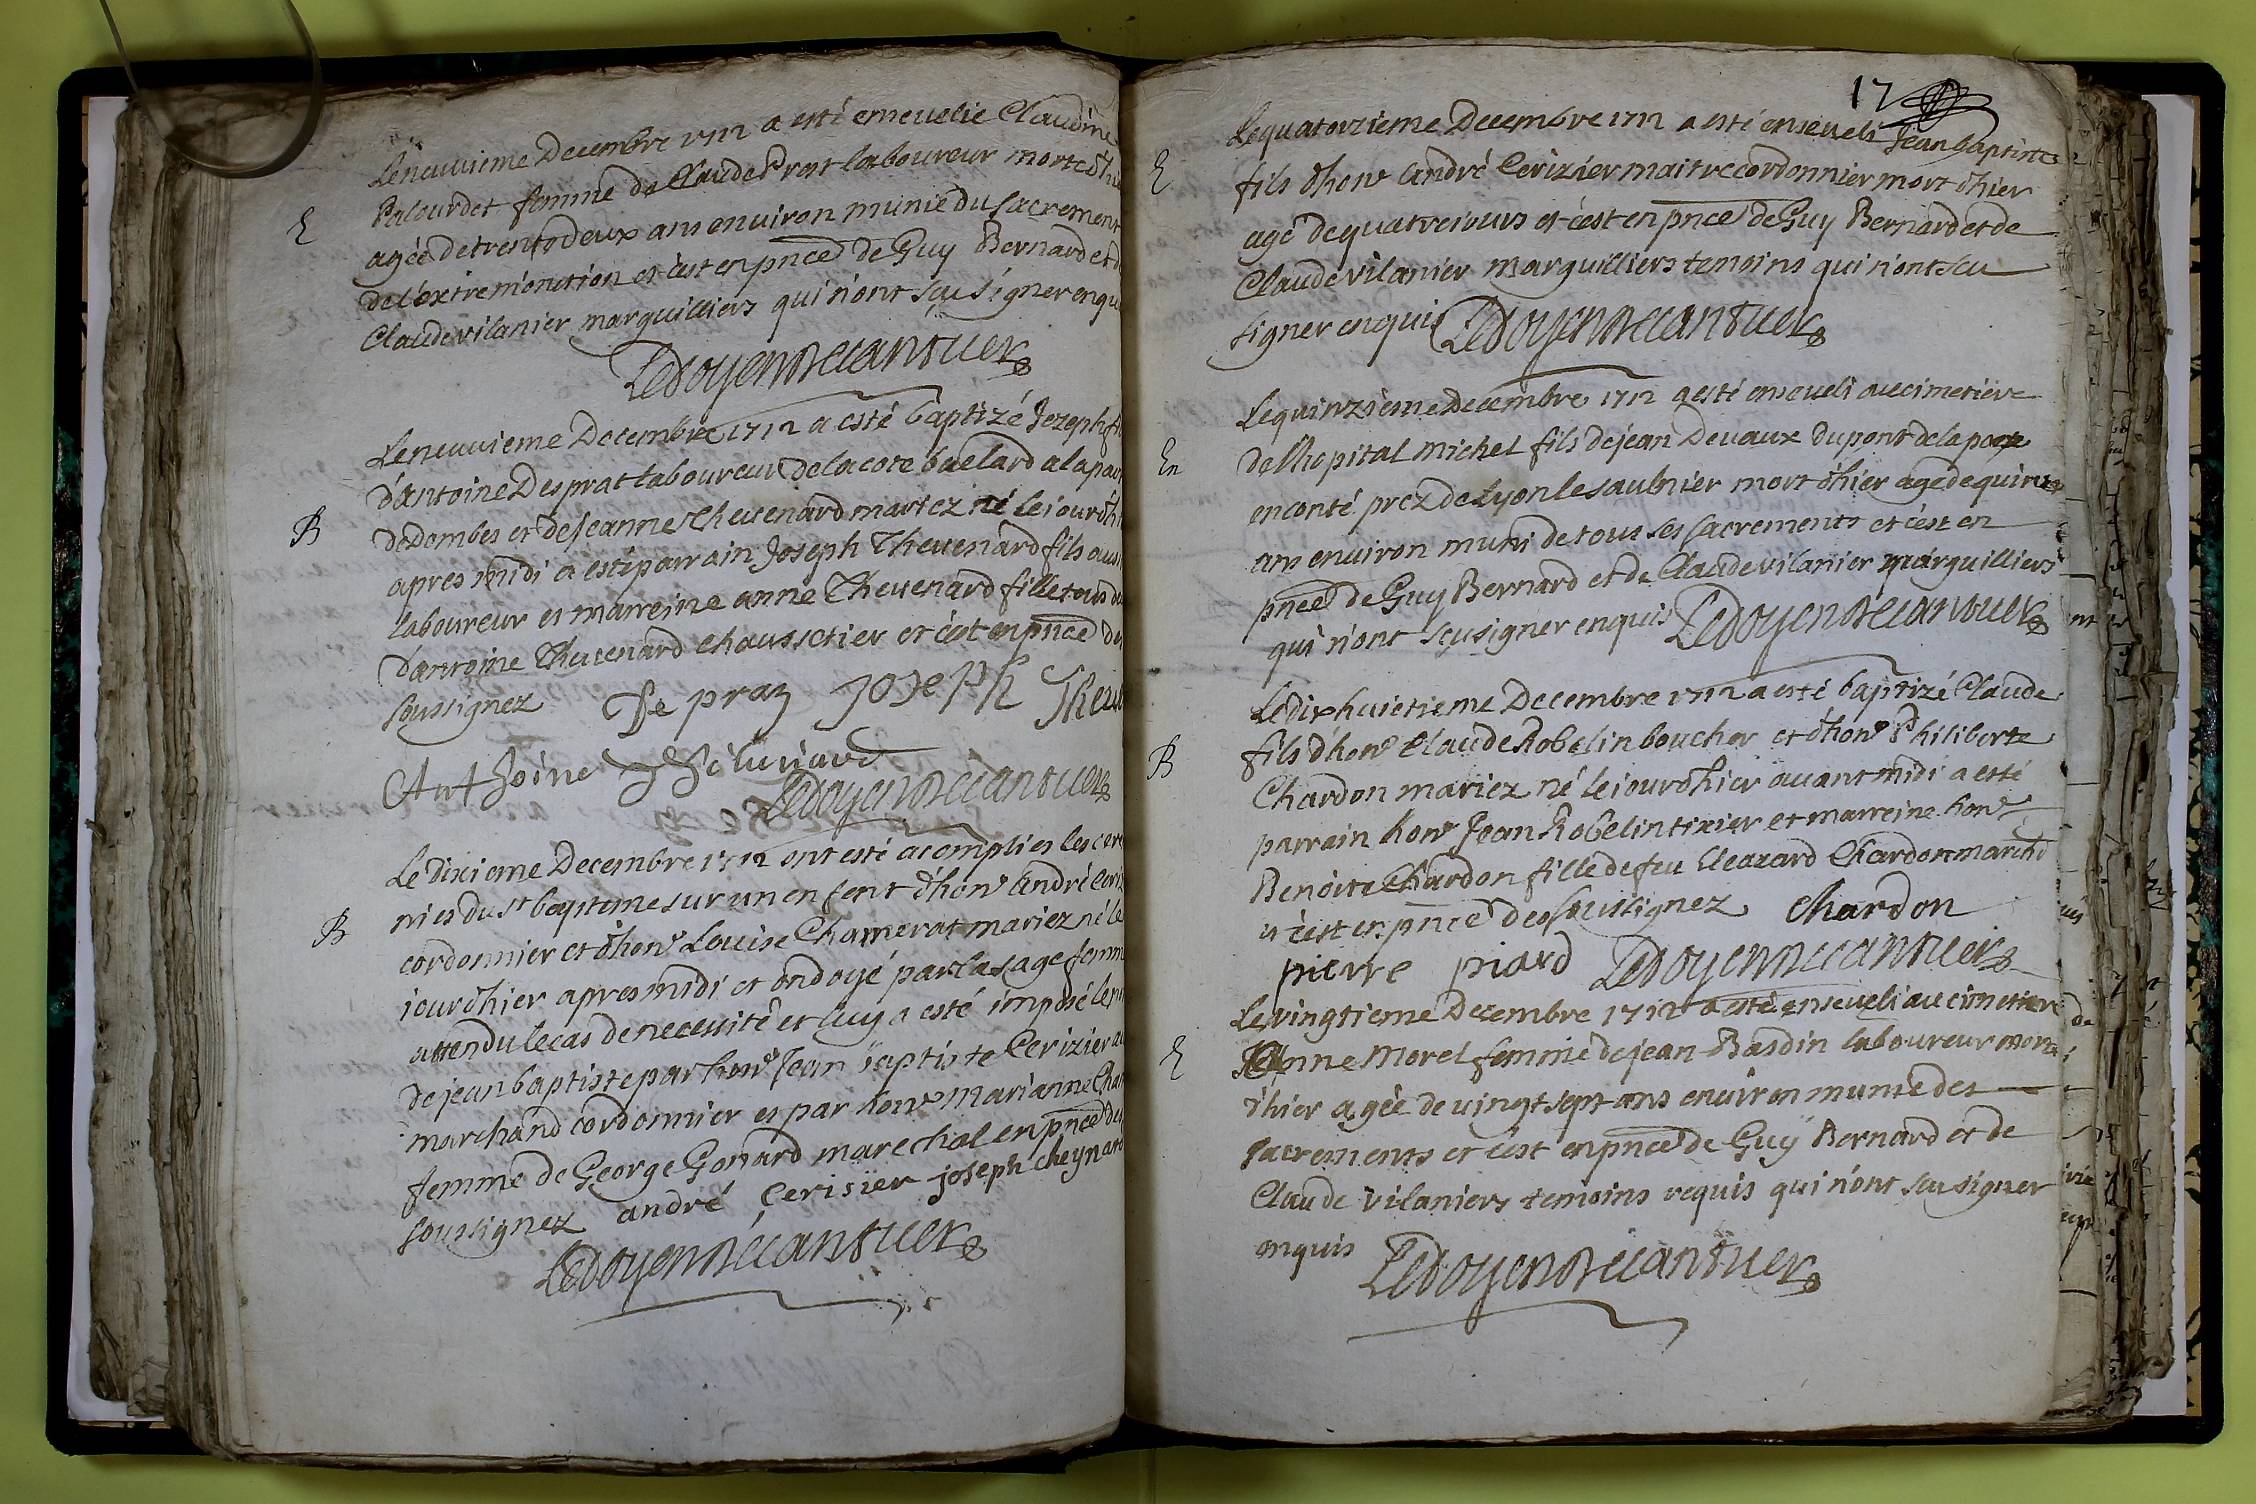 Le neuuieme Decembre 1712 a esté enseuelie Claudine
E
Palourdet femme de Claude Prost laboureur morte d'hie
agée de trente deux ans enuiron munie du sacrement
de l'extremonction et c'est en pnce de Guy Bernard et d
Claude vilanier marguilliers qui n'ont scu signer enqu
Ledoyen Decantuer
Le neuuieme Decembre 1712 a esté baptizé Jozeph fi
d'Antoine Desprat laboureur de la cote baelard a la par
B
de dombes et de Jeanne Theuenard mariez né le iour d'hi
apres midi a esté parrain Joseph Theuenard fils aussi
laboureur et marreine anne Theuenard fille tous de
d'antoine Theuenard chaussetier et c'est en pnce de
soussignez De praz Joseph Theu
Anthoine
Ledoyen Decantuer
Le dixieme Decembre 1712 ont esté acomplies les cere
nies du st bapteme sur un enfent d'hone André Ceriz
B
cordonnier et d'hone Louise Chamerat mariez né le
iour d'hier apres midi et ondoyé par la sage femm
attendu le cas de necessité et luy a esté imposé le n
de jean baptiste par hone Jean baptiste Cerizier au
marchand cordonnier et par hone marianne Cha
femme de George Gonard marechal en pnce de
soussignez andré Cerisier joseph cheynard
Ledoyen Decantuer
17
Le quatorzieme Decembre 1712 a esté enseueli Jean baptiste
E
fils d'hone André Cerizier maitre cordonnier mort d'hier
agé de quatre iours et c'est en pnce de Guy Bernard et de
Claude vilanier marguilliers temoins qui n'ont scu
signer enquis Ledoyen Decantuer
Le quinzieme Decembre 1712 a esté enseueli au cimetiere
En
de l'hopital Michel fils de jean Deuaux du pont de la pote
en conté prez de Lyon le saulnier mort d'hier agé de quinze
ans enuiron muni de tous ses sacrements et c'est en
pnce de Guy Bernard et de Claude vilanier marguilliers
qui n'ont scu signer enquis Ledoyen Decantuer
Le dixhuictieme Decembre 1712 a esté baptizé Claude
fils d'hone Claude Robelin boucher et d'hone Philiberte
B
Chardon mariez né le iour d'hier auant midi a esté
parrain hone Jean Robelin tixier et marreine hone
Benoite Chardon fille de feu Eleazard Chardon marchd
et c'est en pnce des soussignez Chardon
pierre piard Ledoyen Decantuer
Le vingtieme Decembre 1712 a esté enseueli au cimetiere
E
Anne Morel femme de jean Basdin laboureur morte
d'hier agée de vingt sept ans enuiron munie des
sacrements et c'est en pnce de Guy Bernard et de
Claude vilaniers temoins requis qui n'ont scu signer
enquis Ledoyen Decantuer